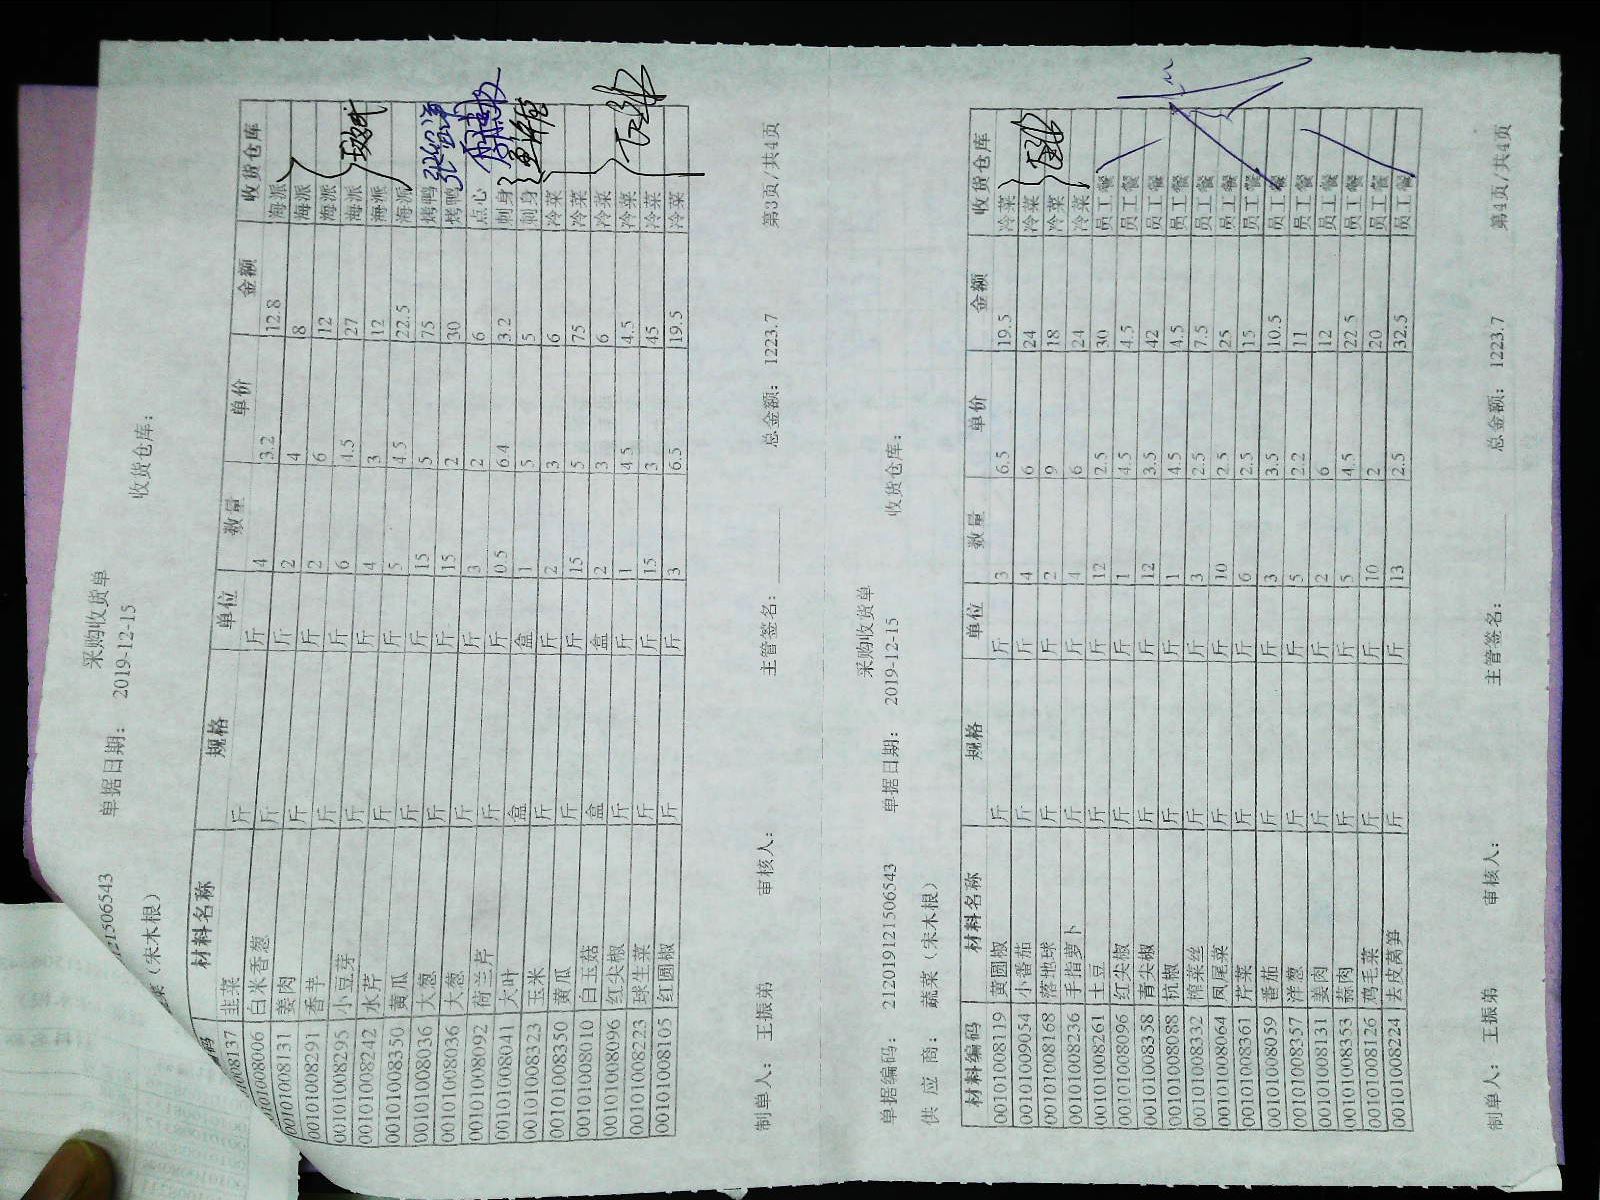 采购收货单
121506543 单据日期： 2019-12-15
（宋木根） 收货仓库：
编码 材料名称 规格 单位 数量 单价 金额 收货仓库
01008137 韭菜 斤 斤 4 3.2 12.8 海派
00101008006 白米香葱 斤 斤 2 4 8 海派
00101008131 姜肉 斤 斤 2 6 12 海派
00101008291 香芋 斤 斤 6 4.5 27 海派
00101008295 小豆芽 斤 斤 4 3 12 海派
00101008242 水芹 斤 斤 5 4.5 22.5 海派
00101008350 黄瓜 斤 斤 15 5 75 烤鸭
00101008036 大葱 斤 斤 15 2 30 烤鸭
00101008036 大葱 斤 斤 3 2 6 点心
00101008092 荷兰芹 斤 斤 0.5 6.4 3.2 刺身
00101008041 大叶 盒 盒 1 5 5 刺身
00101008323 玉米 斤 斤 2 3 6 冷菜
00101008350 黄瓜 斤 斤 15 5 75 冷菜
00101008010 白玉菇 盒 盒 2 3 6 冷菜
00101008096 红尖椒 斤 斤 1 4.5 4.5 冷菜
00101008223 球生菜 斤 斤 15 3 45 冷菜
00101008105 红圆椒 斤 斤 3 6.5 19.5 冷菜
制单人： 王振弟 审核人： 主管签名： 总金额： 1223.7 第3页/共4页
采购收货单
单据编码： 212019121506543 单据日期： 2019-12-15
供 应 商： 蔬菜（宋木根） 收货仓库：
材料编码 材料名称 规格 单位 数量 单价 金额 收货仓库
00101008119 黄圆椒 斤 斤 3 6.5 19.5 冷菜
00101009054 小番茄 斤 斤 4 6 24 冷菜
00101008168 落地球 斤 斤 2 9 18 冷菜
00101008236 手指萝卜 斤 斤 4 6 24 冷菜
00101008261 土豆 斤 斤 12 2.5 30 员工餐
00101008096 红尖椒 斤 斤 1 4.5 4.5 员工餐
00101008358 青尖椒 斤 斤 12 3.5 42 员工餐
00101008088 杭椒 斤 斤 1 4.5 4.5 员工餐
00101008332 榨菜丝 斤 斤 3 2.5 7.5 员工餐
00101008064 凤尾菜 斤 斤 10 2.5 25 员工餐
00101008361 芹菜 斤 斤 6 2.5 15 员工餐
00101008059 番茄 斤 斤 3 3.5 10.5 员工餐
00101008357 洋葱 斤 斤 5 2.2 11 员工餐
00101008131 姜肉 斤 斤 2 6 12 员工餐
00101008353 蒜肉 斤 斤 5 4.5 22.5 员工餐
00101008126 鸡毛菜 斤 斤 10 2 20 员工餐
00101008224 去皮莴笋 斤 斤 13 2.5 32.5 员工餐
制单人： 王振弟 审核人： 主管签名： 总金额： 1223.7 第4页/共4页